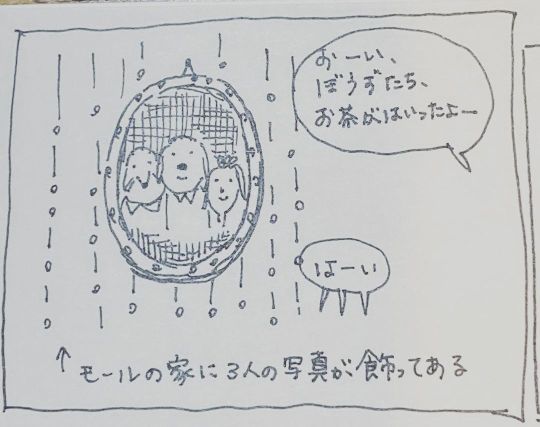 おーい、
ぼうずたち、
お茶がはいったよー
はーい
↑モールの家に3人の写真が飾ってある